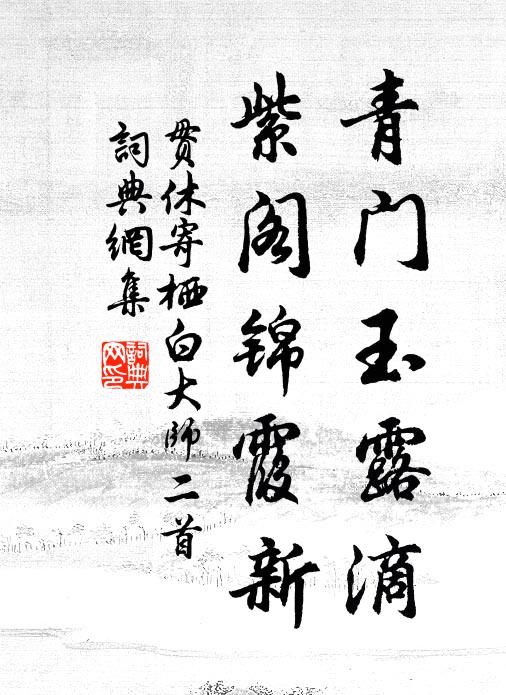 青门玉露滴
紫阁锦霞新
贯休寄栖白大师二首
詞典網集
詞典
网印